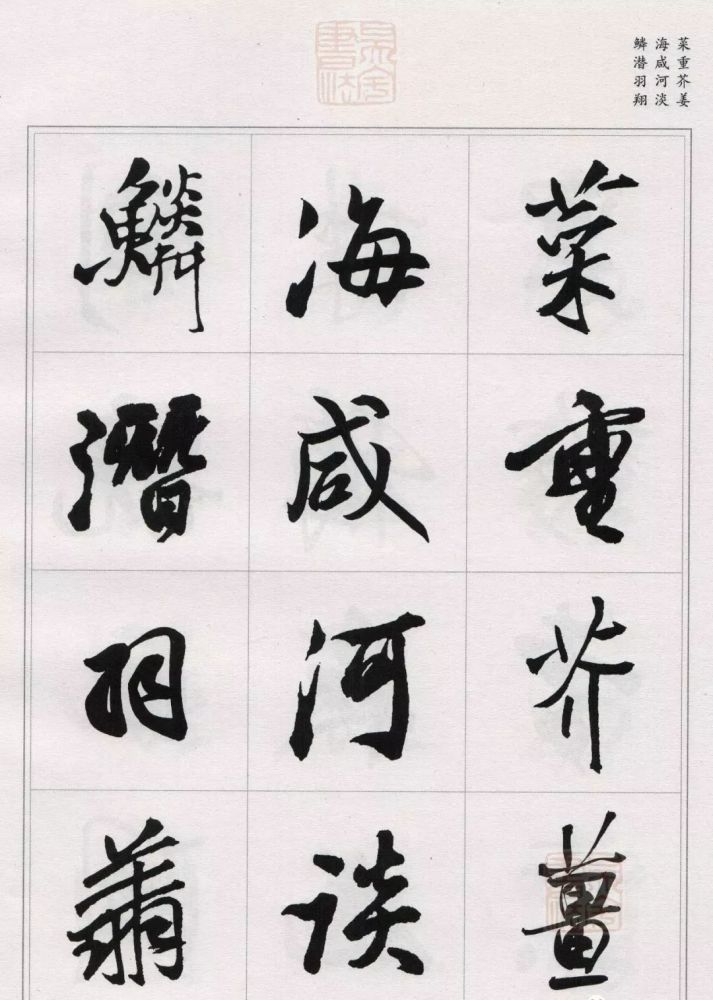 菜重芥姜
海咸河淡
鳞潜羽翔
菜重芥薑
海咸河淡
鱗潛羽翔